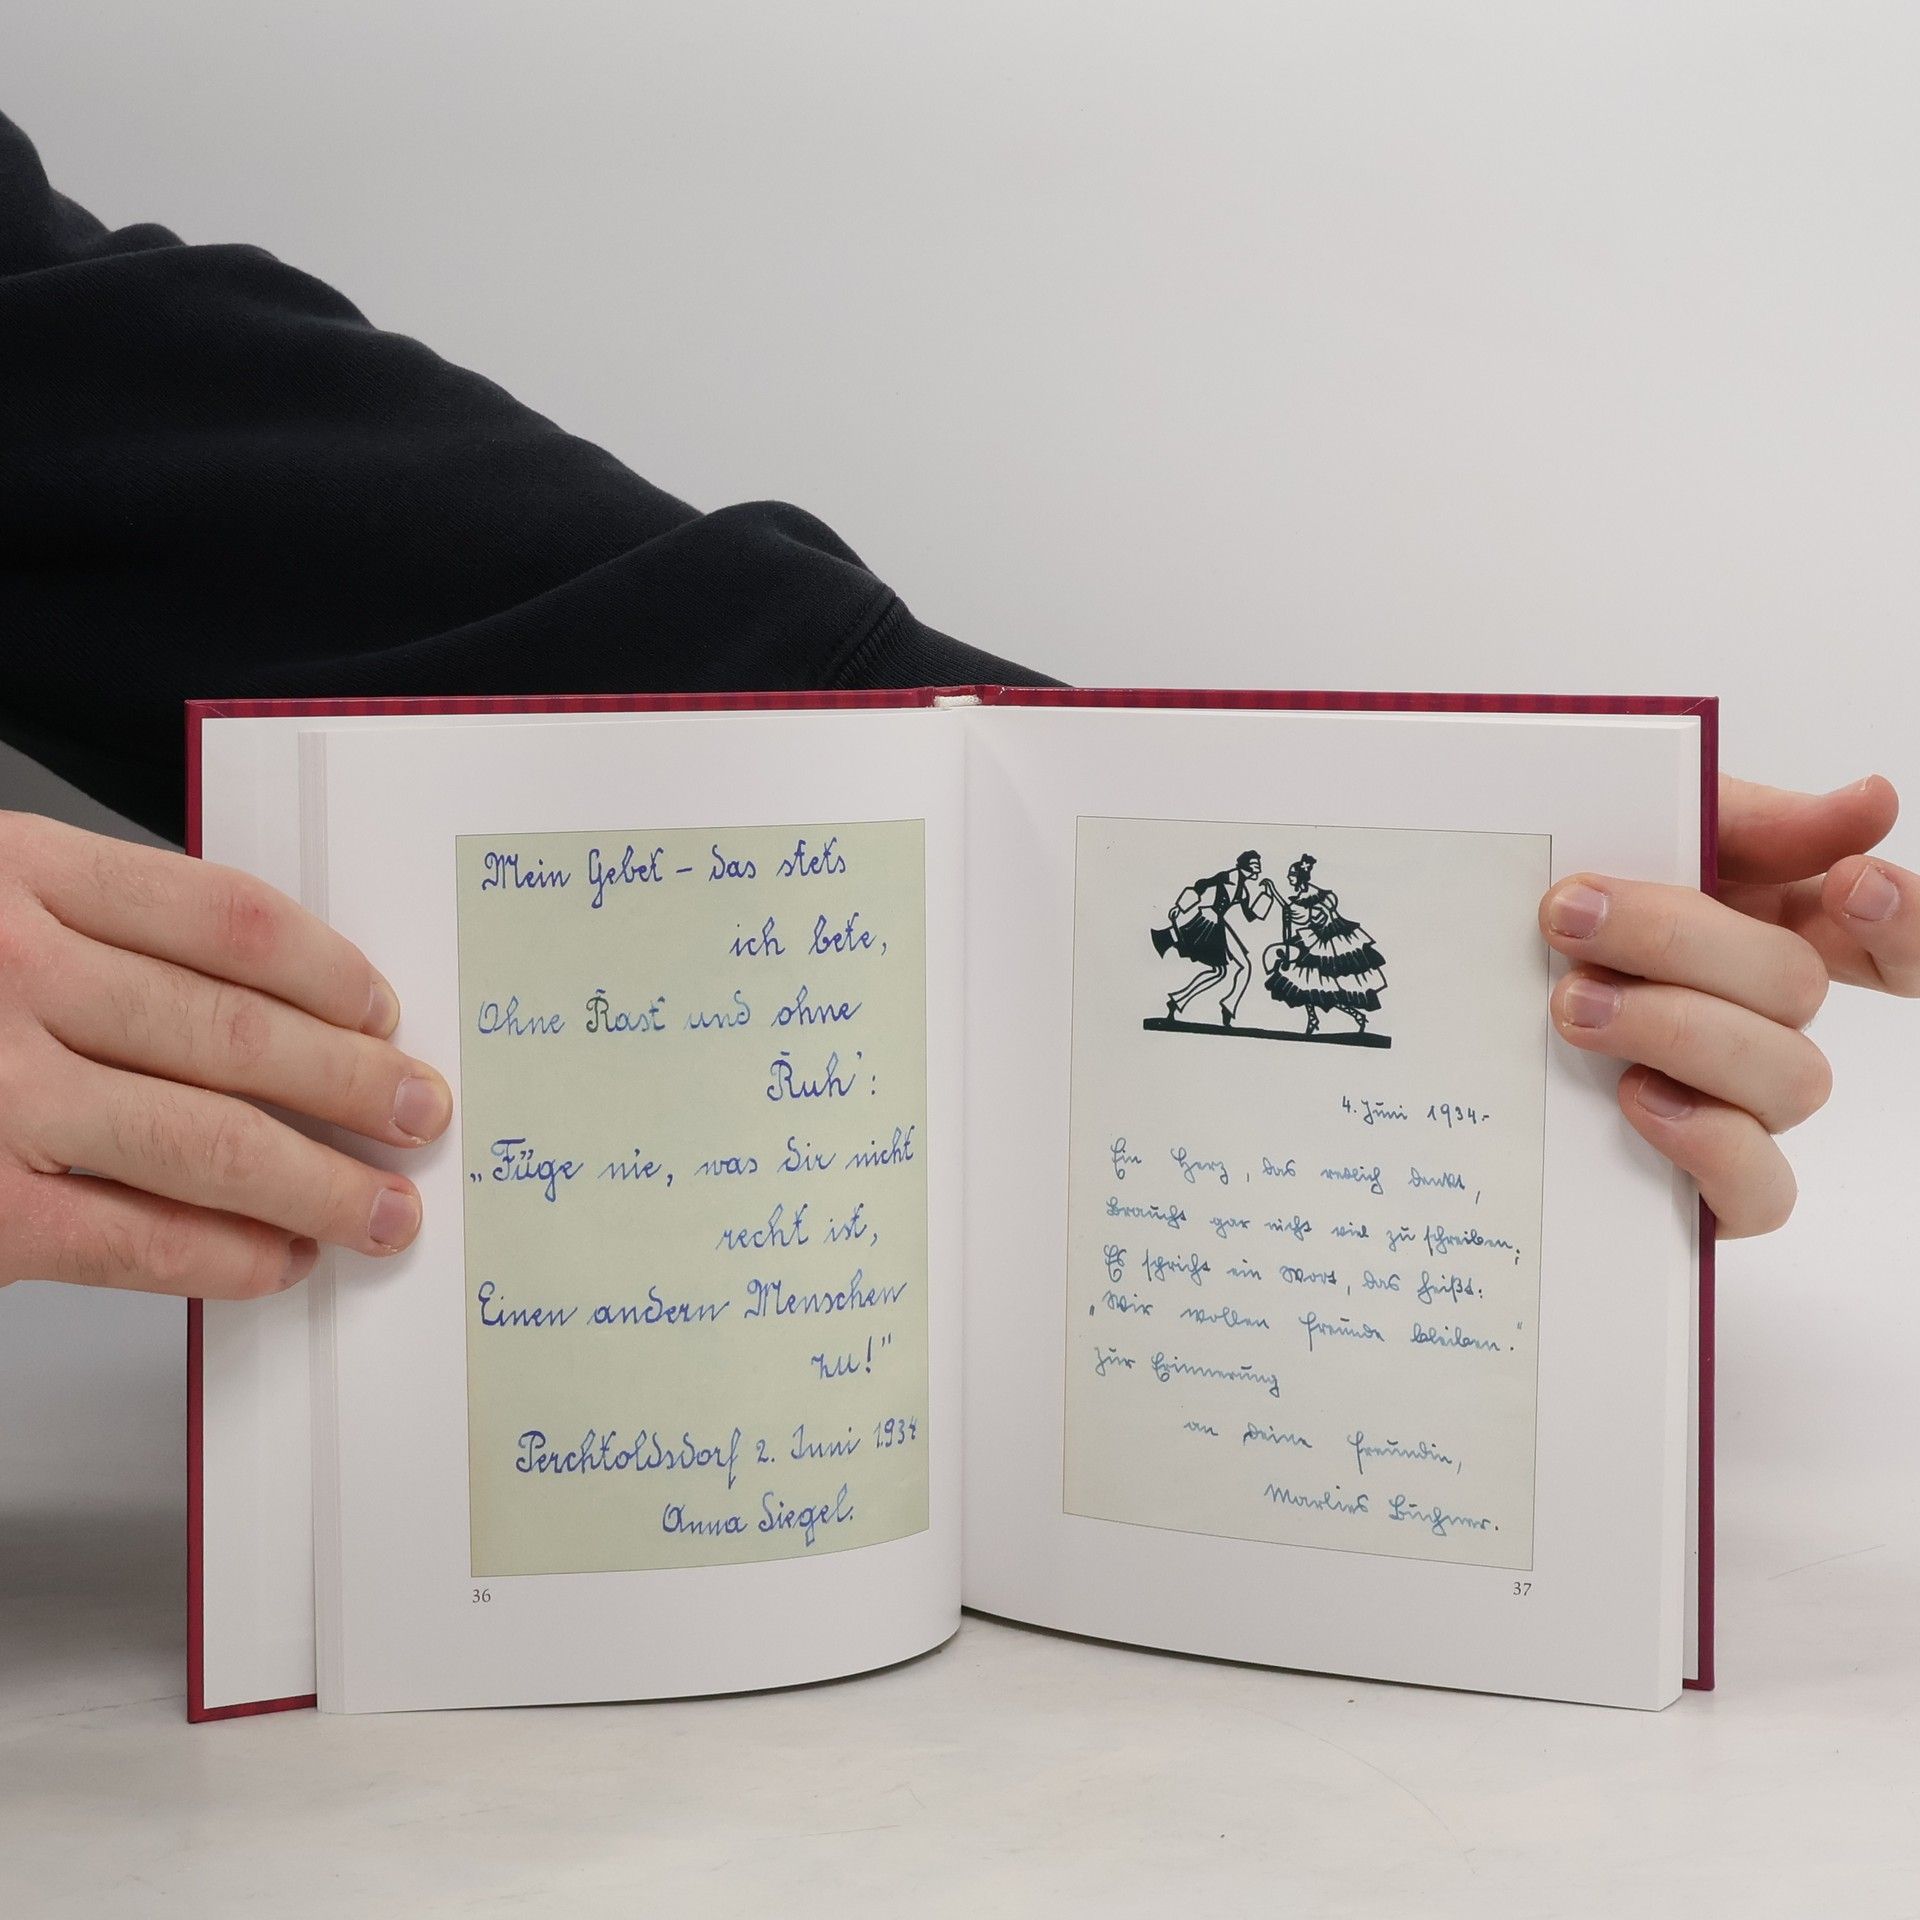 Mein Gebet – das stets
ich bete,
Ohne Rast und ohne
Ruh':
„Füge nie, was dir nicht
recht ist,
Einen andern Menschen
zu!"
Perchtoldsdorf 2. Juni 1934
Anna Siegel.
36
4. Juni 1934.-
Ein Herz, das redlich denkt,
Braucht gar nicht viel zu schreiben;
Es spricht ein Wort, das heißt:
„Wir wollen Freunde bleiben."
Zur Erinnerung
an Deine Freundin,
Marlies Büchner.
37